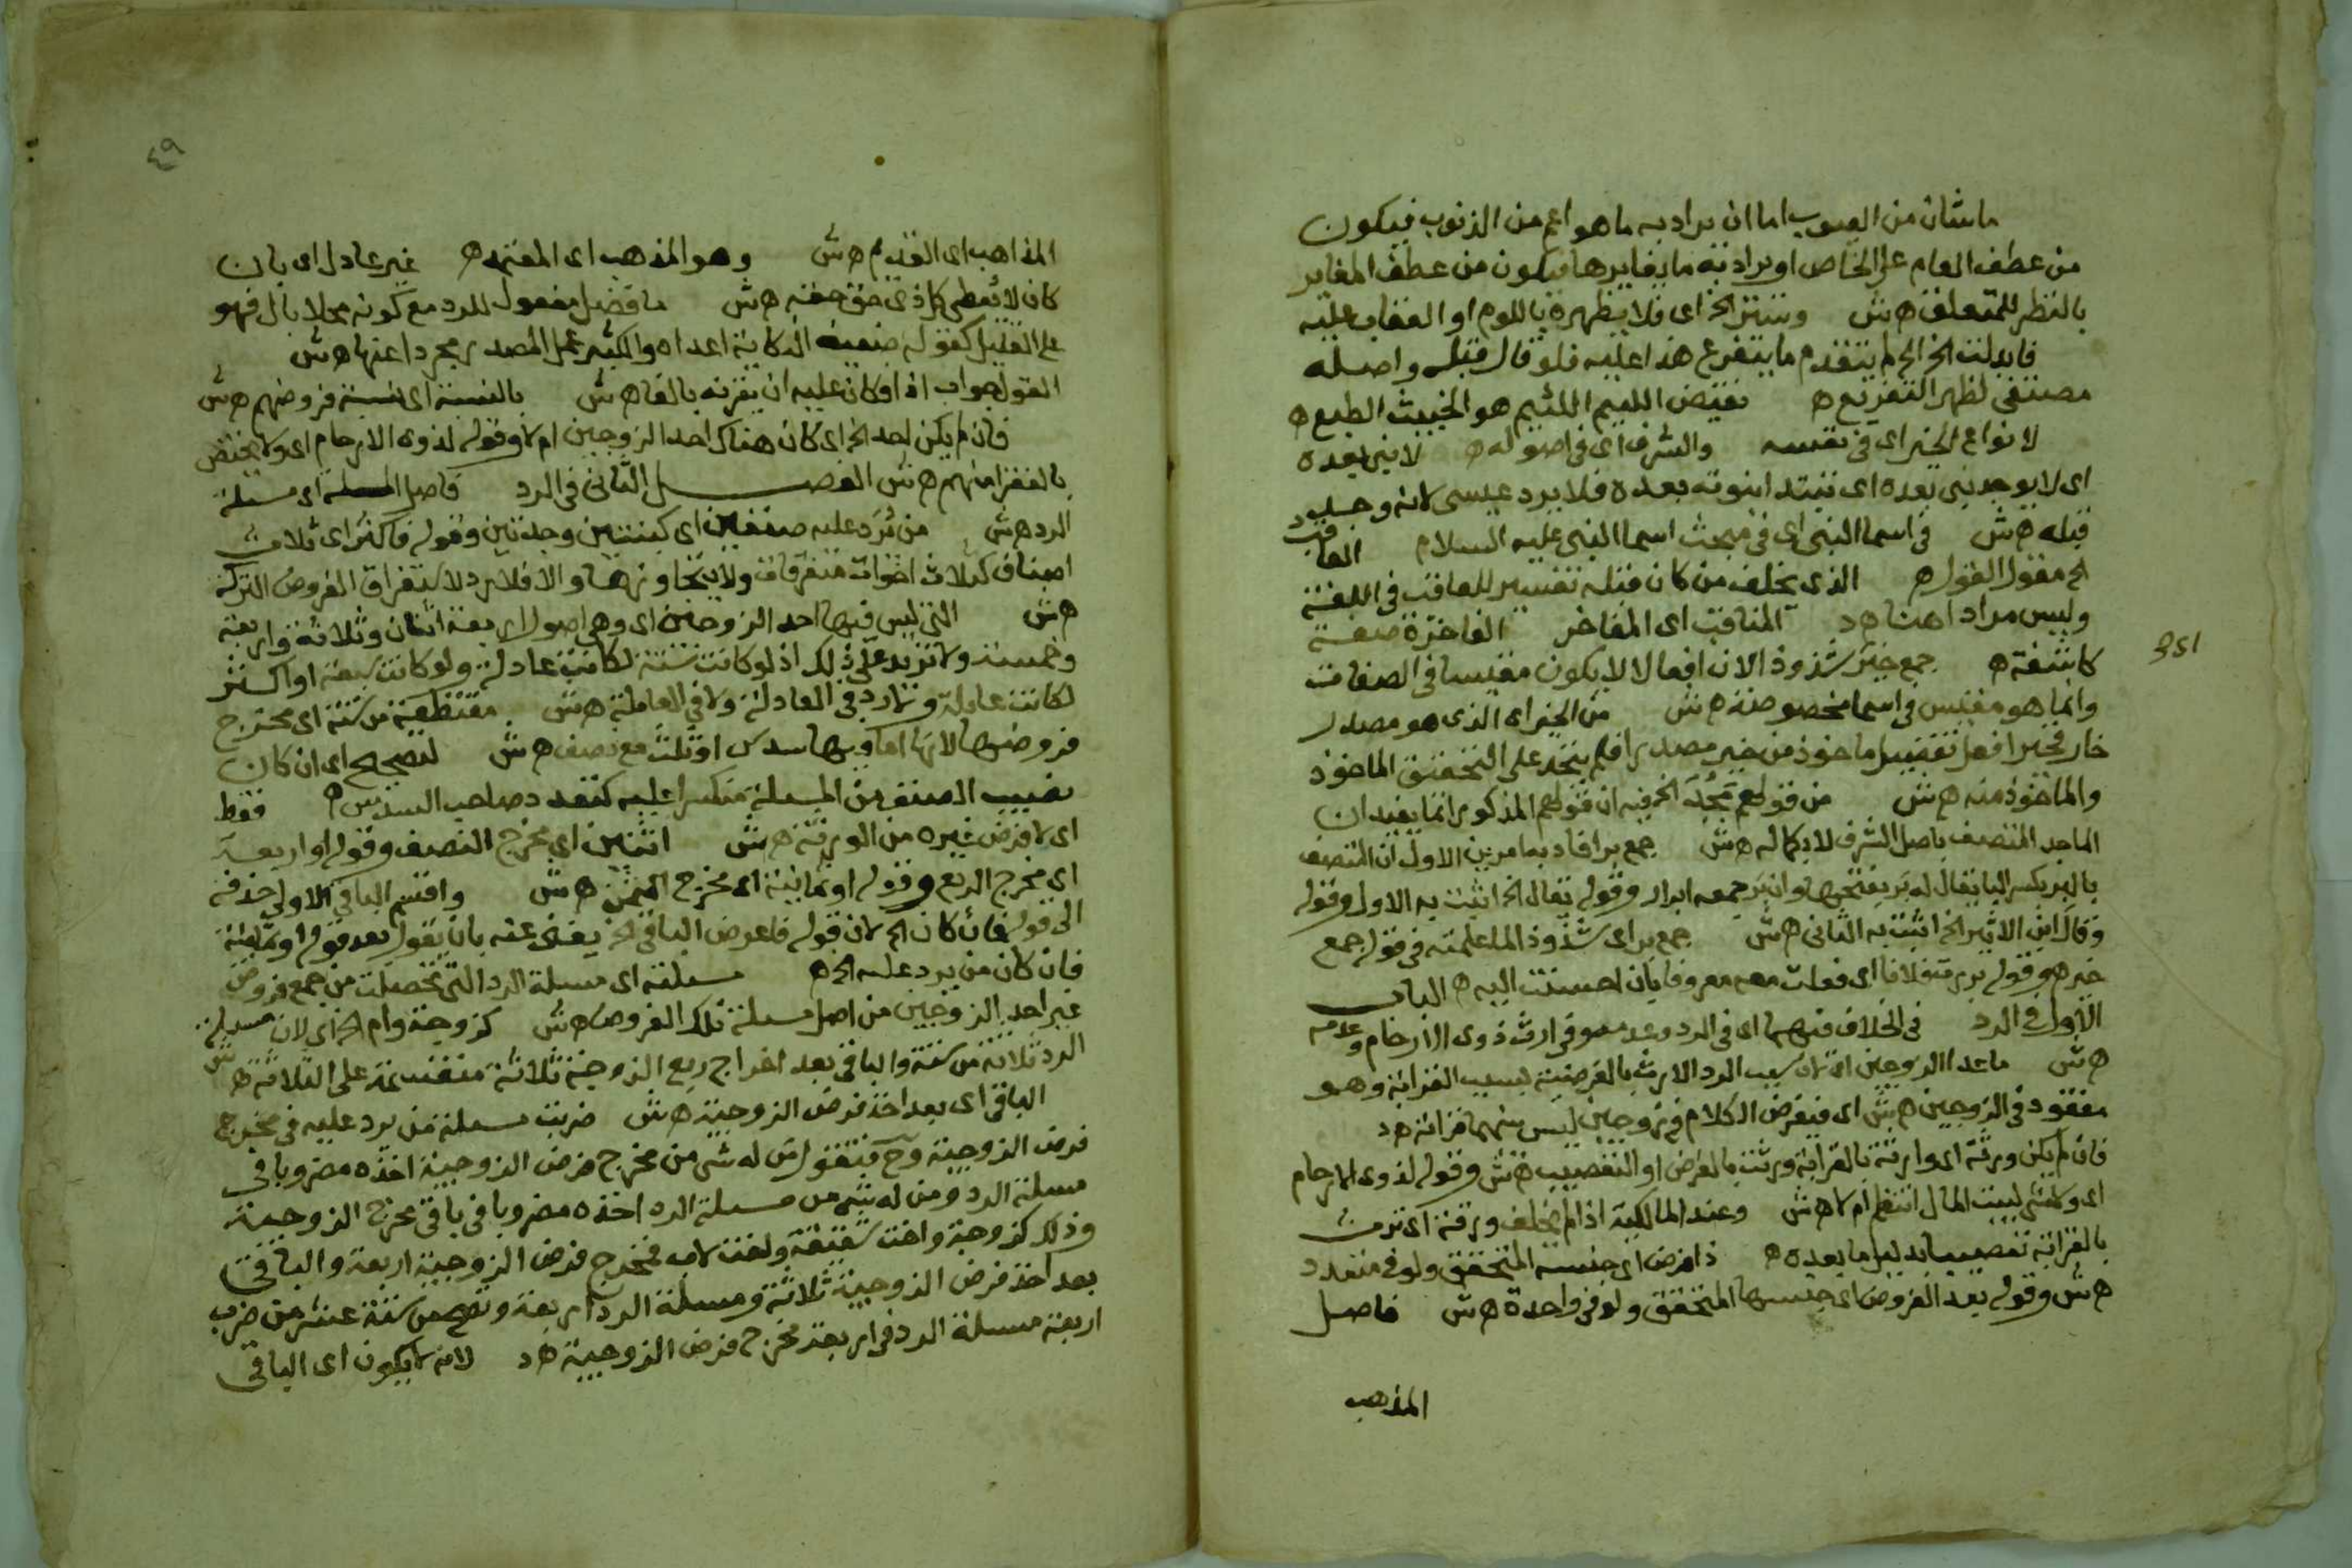 ما شان من العيوب اما ان يراد به ما هو اعم من الذنوب فيكون
من عطف العام على الخاص او يراد به ما يغايرها فيكون من عطف المغاير
بالنظر للمتعلق ه ش وستر الخ اى فلا يظهره باللوم او العقاب عليه
فابدلت الخ الخ لم يتقدم ما يتفرع هذا عليه فلو قال قبله واصله
مصتفى لظهر التفريع ه نقيض اللييم اللئيم هو الخبيث الطبع ه
لانواع الخير اى فى نفسه والشرف اى فى اصوله ه لا نبى بعده
اى لا يوجد نبى بعده اى تبتدا نبوته بعده فلا يرد عيسى لانه وجد
قبله ه ش فى اسما النبى اى فى مبحث اسما النبى عليه السلام العاقب
الخ مقول القول ه الذى يخلف من كان قبله تفسير للعاقب فى اللغة
وليس مرادا هنا ه د المناقب اى المفاخر الفاخرة صفة
كاشفة ه جمع خير شذوذا لان افعالا لا يكون مقيسا فى الصفات
وانما هو مقيس فى اسما مخصوصة ه ش من الخير اى الذى هو مصدر
خار فخير افعل تفضيل ماخوذ من خير مصدرا فلم يتحد على التحقيق الماخوذ
والماخوذ منه ه ش من قولهم مجد الخ فيه ان قولهم المذكور انما يفيد ان
الماجد المتصف باصل الشرف لا بكماله ه ش جمع بر افاد بها مرين الاول ان المتصف
بالبر بكسر البا يقال له بر بفتحها وان بر جمعه ابرار وقوله يقال الخ اثبت به الاول وقوله
وقال ابن الاثير الخ اثبت به الثانى ه ش جمع بر اى شذوذا لما علمته فى قوله جمع
خير ه وقوله بررت فلانا اى فعلت معه معروفا بان احسنت اليه ه الباب
الاول فى الرد فى الخلاف فيهما اى فى الرد وعدمه وفى ارث ذوى الارحام وعدمه
ه ش ما عدا الزوجين اى لان سبب الرد الارث بالفرضية بسبب القرابة وهو
مفقود فى الزوجين ه ش اى فيفرض الكلام فى زوجين ليس بينهما قرابة ه د
فان لم يكن ورثة اى وارثة بالقرابة ورثت بالفرض او التعصيب ه ش وقوله لذوى الارحام
اى ولا شى لبيت المال انتظم ام لا ه ش وعند المالكية اذا لم يخلف ورثة اى ترث
بالقرابة تعصيبا بدليل ما بعده ه ذا فرض اى جنسه المتحقق ولو فى متعدد
ه ش وقوله بعد الفروض اى جنسها المتحقق ولو فى واحدة ه ش فاصل
المذهب
٤٩
المذاهب اى القديم ه ش وهو المذهب اى المعتمد ه غير عادل اى بان
كان لا يعطى كل ذى حق حقه ه ش ما فضل مفعول للرد مع كونه محلا بال فهو
على القليل كقوله ضعيف النكاية اعداه والكثير عمل المصدر مجردا عنها ه ش
القول جواب اذا وكان عليه ان يقرنه بالفا ه ش بالنسبة اى نسبة فروضهم ه ش
فان لم يكن احد الخ اى كان هناك احد الزوجين ام لا وقوله لذوى الارحام اى ولا يختص
بالفقرا منهم ه ش الفصـل الثانى فى الرد فاصل المسلة اى مسلة
الرد ه ش من يرد عليه صنفين اى كبنتين وجدتين وقوله فاكثر اى ثلاث
اصناف كثلاث اخوات متفرقات ولا يتجاوزها والا فلا رد لاستغراق الفروض التركة
ه ش التى ليس فيها احد الزوجين اى وهى اصول اربعة اثنان وثلاثة واربعة
وخمسة ولا تزيد على ذلك اذ لو كانت ستة لكانت عادلة ولو كانت سبعة او اكثر
لكانت عايلة ولا رد فى العادلة ولا فى العايلة ه ش مقتطعة من ستة اى مخرج
فروضها لانها اما فيها سدس او ثلث مع نصف ه ش لتصحيح اى ان كان
نصيب الصنف من المسلة منكسرا عليه كتعدد صاحب السدس ه فقط
اى لا فرض غيره من الورثة ه ش اثنين اى مخرج النصف وقوله او اربعة
اى مخرج الربع وقوله او ثمانية اى مخرج الثمن ه ش واقسم الباقى الاولى حذفه
الى قوله فان كان الخ لان قوله فاعرض الباقى الخ يغنى عنه بان يقول بعد قوله او ثمانية
فان كان من يرد عليه الخ ه مسلته اى مسلة الرد التى تحصلت من جمع فروض
غير احد الزوجين من اصل مسلة تلك الفروض ه ش كزوجة وام الخ اى لان مسلة
الرد ثلاثة من ستة والباقى بعد اخراج ربع الزوجية ثلاثة منقسمة على الثلاثة ه ش
الباقى اى بعد اخذ فرض الزوجية ه ش ضربت مسلة من يرد عليه فى مخرج
فرض الزوجية وح فتقول من له شى من مخرج فرض الزوجية اخذه مضروبا فى
مسلة الرد ومن له شى من مسلة الرد اخذه مضروبا فى باقى مخرج الزوجية
وذلك كزوجة واخت شقيقة واخت لاب فمخرج فرض الزوجية اربعة والباقى
بعد اخذ فرض الزوجية ثلاثة ومسلة الرد اربعة وتصح من ستة عشر من ضرب
اربعة مسلة الرد فى اربعة مخرج فرض الزوجية ه د لانه لا يكون اى الباقى